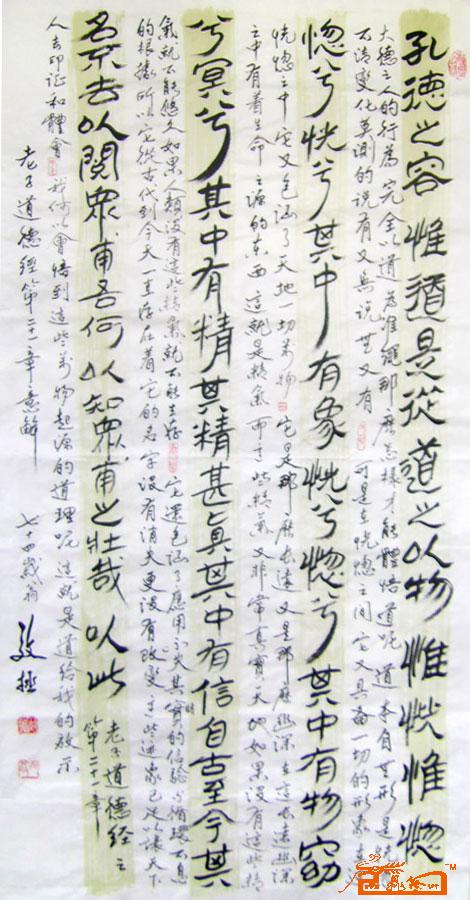 孔德之容惟道是從道之以物惟恍惟惚
大德之人的行為完全以道為准繩那麼怎樣才能體悟道呢道本自無形是
不清變化莫測的說有又無說無又有可是在恍惚之間它又具備一切的形象在
惚兮恍兮其中有象恍兮惚兮其中有物窈
恍惚之中它又包涵了天地一切萬物它是那麼長遠又是那麼幽深在這長遠幽深
之中有着生命之源的東西這就是精氣而這些精氣又非常真實天地如果没有這些精
兮冥兮其中有精其精甚真其中有信自古至今其
氣就不能悠久如果人類没有這些精氣就不能生存它還包涵了應用不失其實的信驗与循環不息
的根據所以它從古代到今天一直存在着它的名字没有消失更没有改變這些迹象已足以讓天下
名不去以閱衆甫吾何以知衆甫之壯哉以此
老子道德經之
第二十一章
人去印证和體會我何以會悟到這些萬物起源的道理呢這就是道給我的啟示
老子道德經第二十一章意解
七十四歲翁